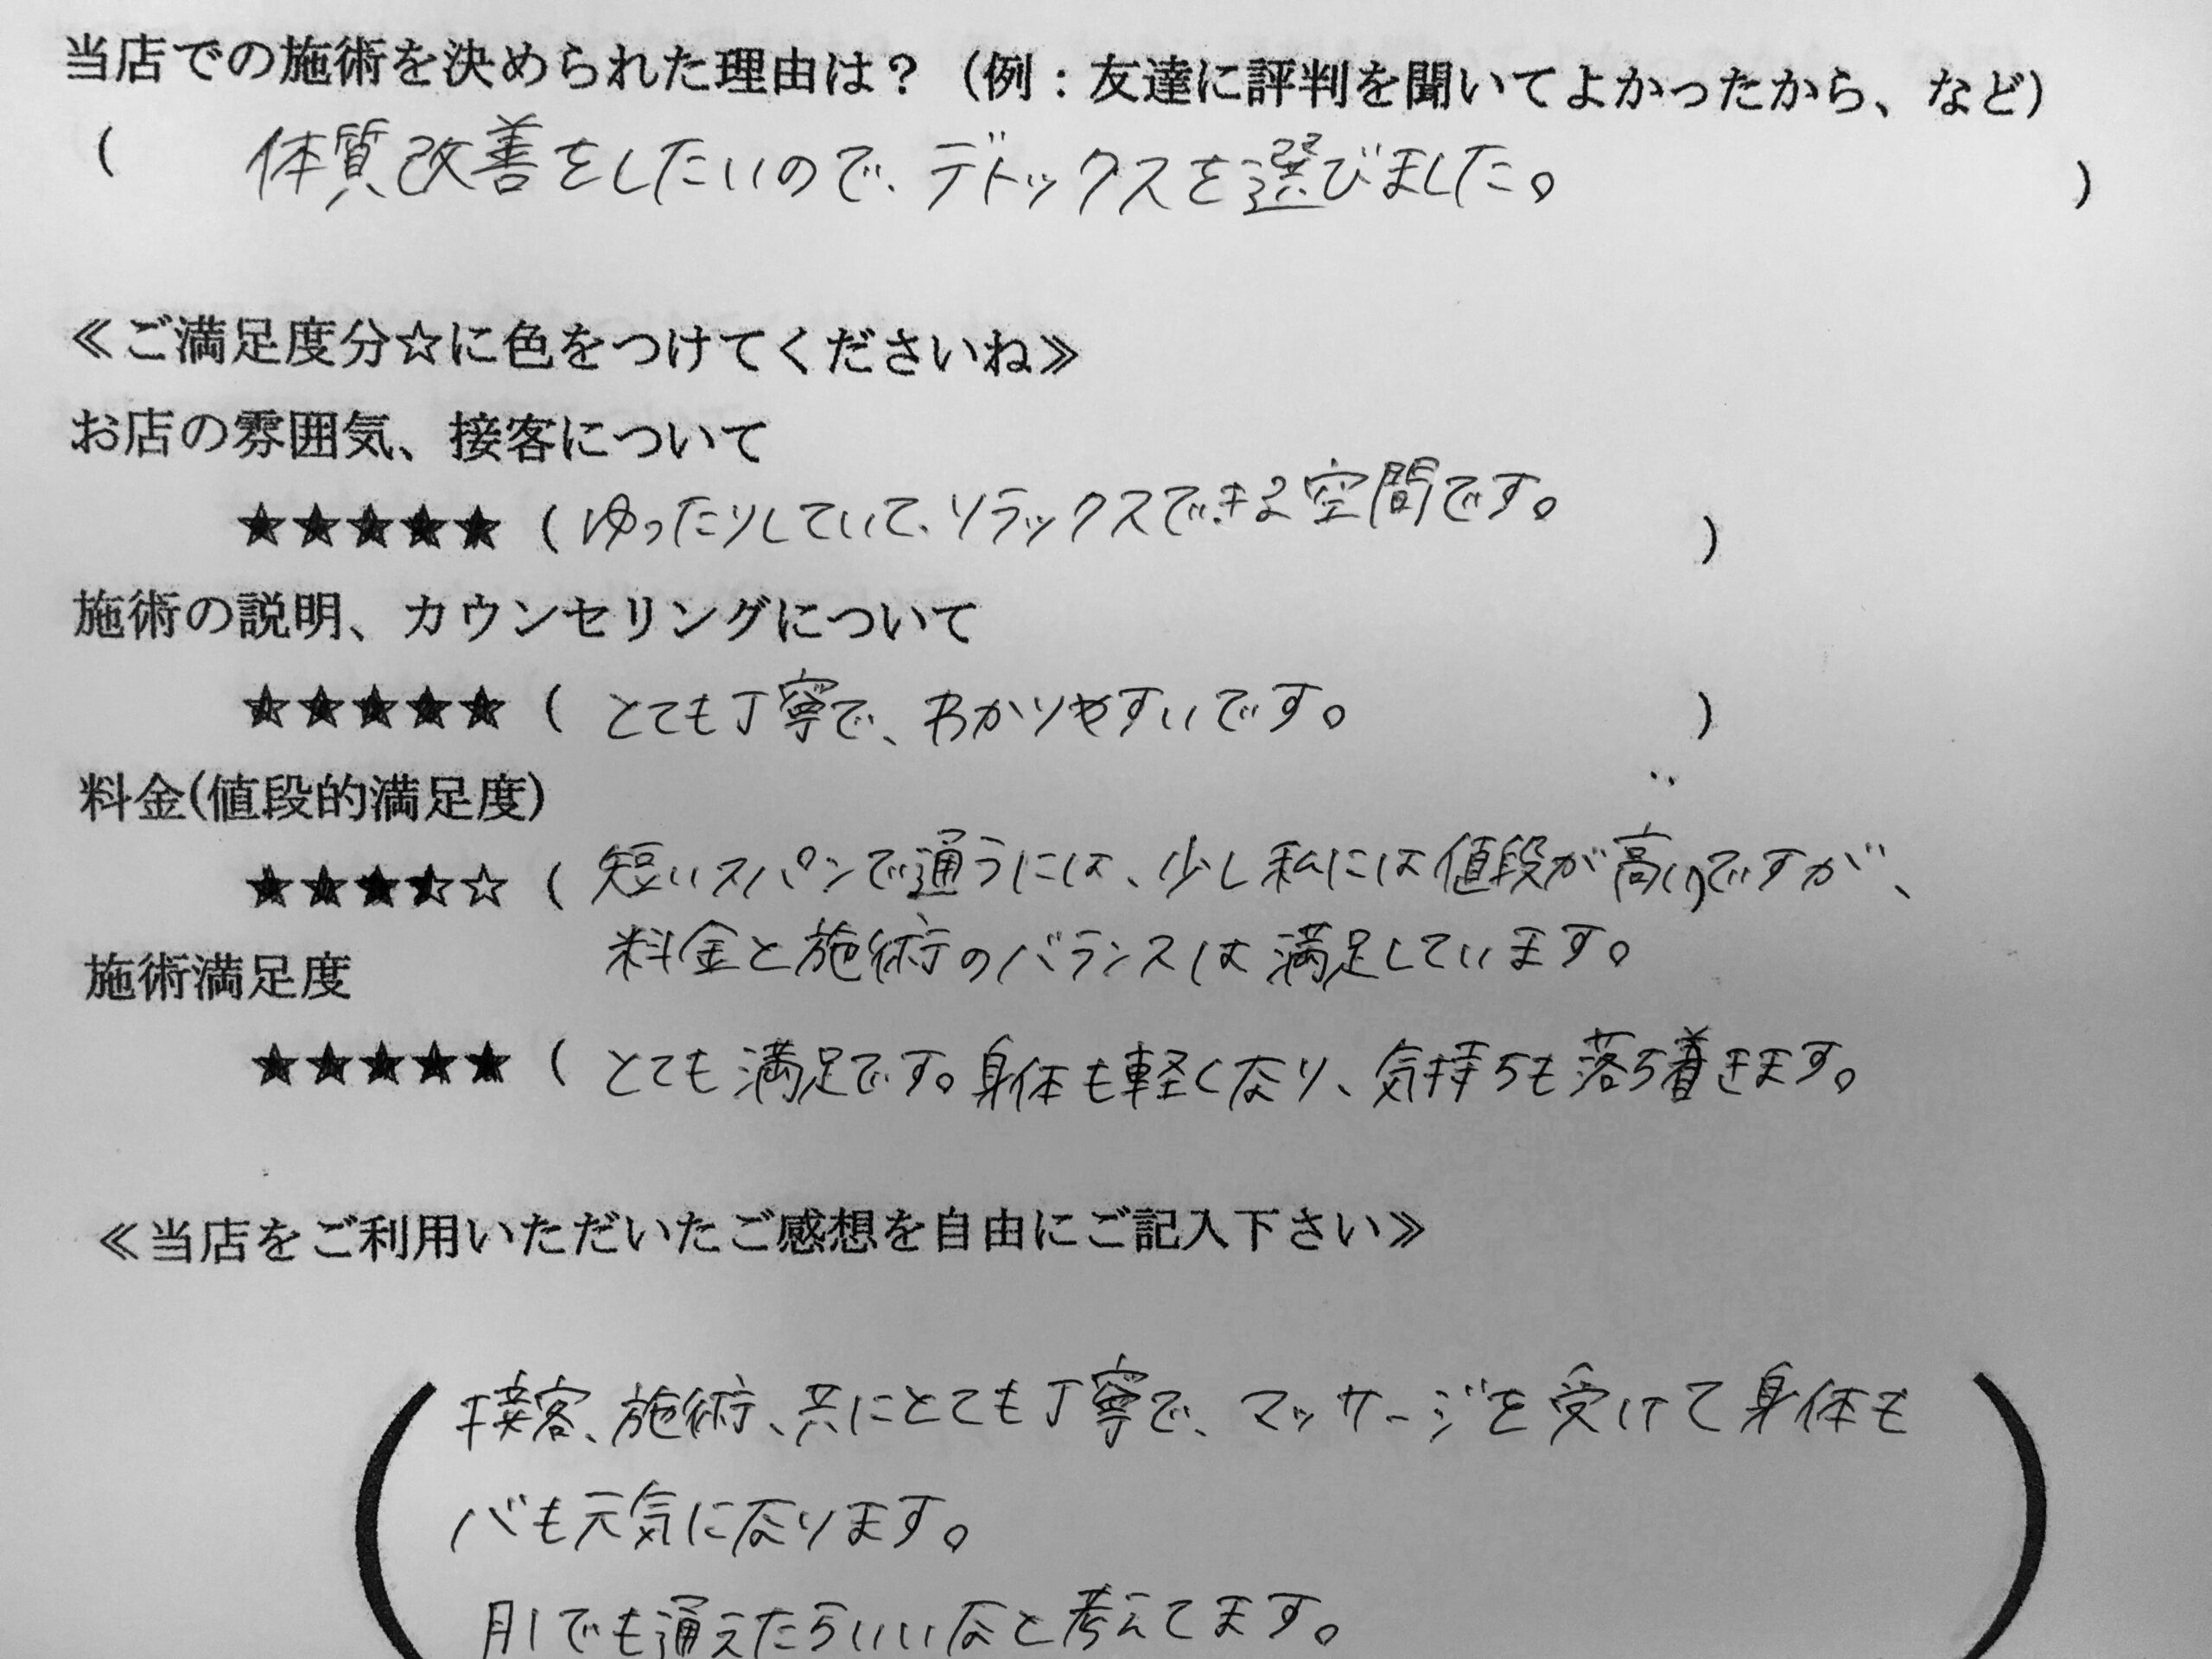 当店での施術を決められた理由は？（例：友達に評判を聞いてよかったから、など）
（ 体質改善をしたいので、デトックスを選びました。 ）
≪ご満足度分☆に色をつけてくださいね≫
お店の雰囲気、接客について
★★★★★（ゆったりしていて、リラックスできる空間です。 ）
施術の説明、カウンセリングについて
★★★★★（ とても丁寧で、わかりやすいです。 ）
料金(値段的満足度)
★★★★☆（ 短いスパンで通うには、少し私には値段が高いですが、
料金と施術のバランスは満足しています。
施術満足度
★★★★★（ とても満足です。身体も軽くなり、気持ちも落ち着きます。
≪当店をご利用いただいたご感想を自由にご記入下さい≫
接客、施術、共にとても丁寧で、マッサージを受けて身体も
心も元気になります。
月1でも通えたらいいなと考えてます。